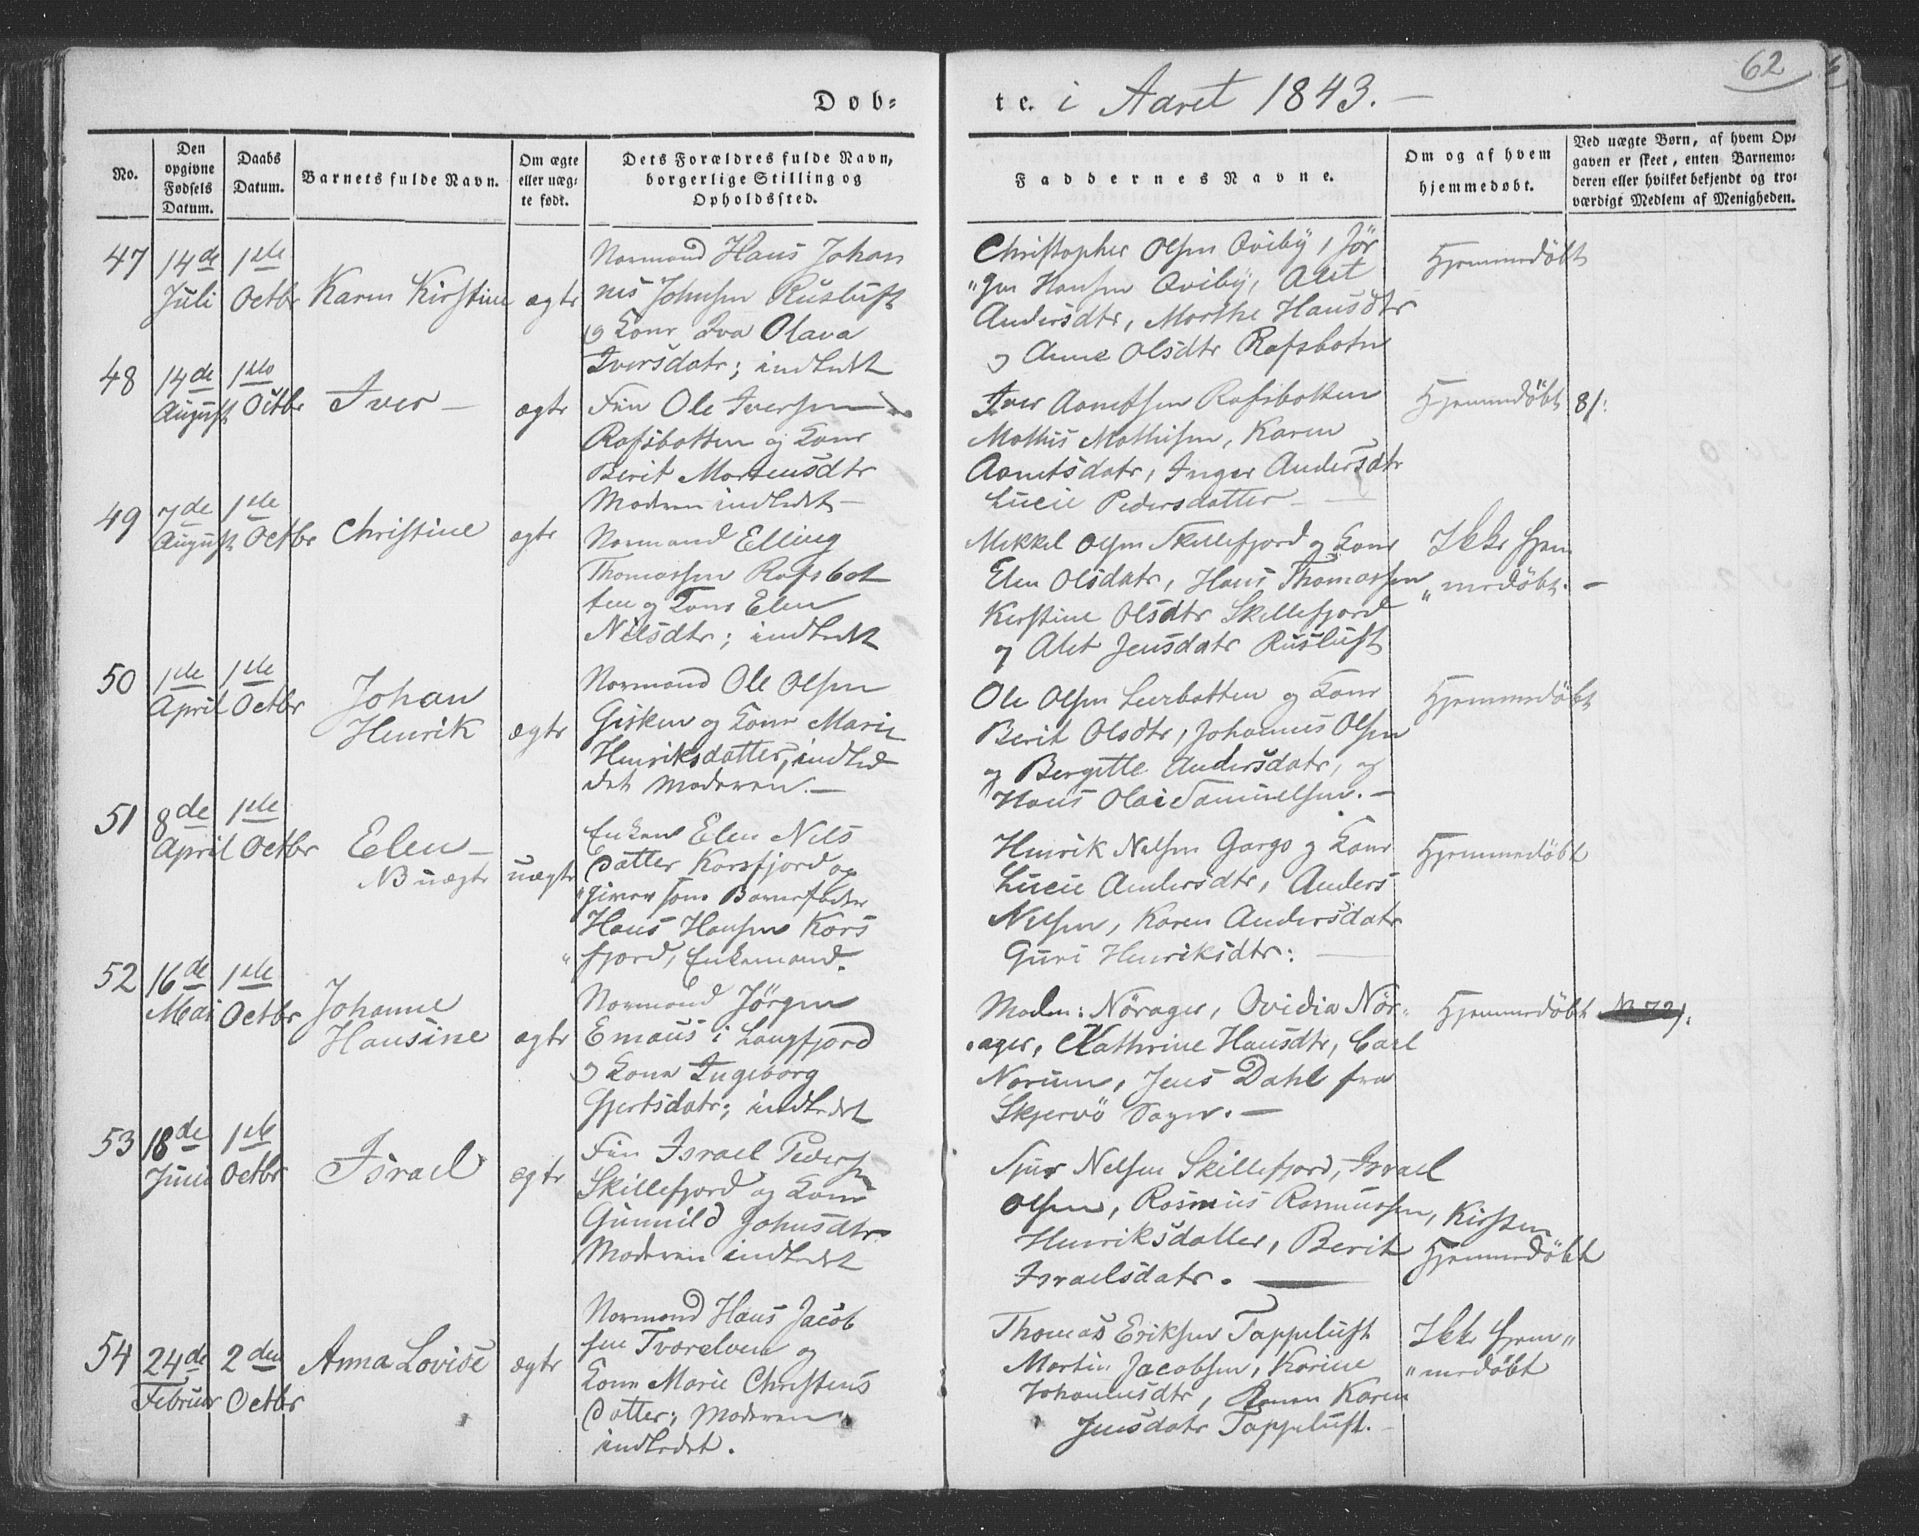 62
Døb-
te. i Aaret 1843.
No.
Den opgivne Fødsels Datum.
Daabs Datum.
Barnets fulde Navn.
Om ægte eller uægte født.
Dets Forældres fulde Navn, borgerlige Stilling og Opholdssted.
Faddernes Navne.
Om og af hvem hjemmedøbt.
Ved uægte Børn, af hvem Opgaven er skeet, enten Barnemoderen eller hvilket bekjendt og troværdigt Medlem af Menigheden.
47
14de Juli
1ste Octbr
Karen Kirstine
ægte
Normand Hans Johan
nes Johnsen Rusluft
og Kone Eva Olava
Iversdatr; indledt
Christopher Olsen Qviby, Jør
"gen Hansen Qviby, Alet
Andersdtr, Marthe Hansdtr
og Anne Olsdtr Rafsbotn
Hjemmedøbt
48
14de August
1ste Octbr
Iver —
ægte
Fin Ole Iversen
Rafsbotten og Kone
Berit Mortensdtr
Moderen indledt —
Iver Aametsen Rafsbotten
Mathis Mathisen, Karen
Aametsdatr, Inger Andersdtr
Lucie Pedersdatter —
Hjemmedøbt
81.
49
7de August
1ste Octbr
Christine
ægte
Normand Elling
Thomassen Rafsbot
ten og Kone Elen
Nilsdtr; indledt
Mikkel Olsen Skillefjord og Kone
Elen Olsdatr, Hans Thomassen
Kirstine Olsdtr Skillefjord
og Alet Jensdatr Rusluft
Ikke hjem
"medøbt. —
50
1ste April
1ste Octbr
Johan
Henrik
ægte
Normand Ole Olsen
Gisken og Kone Marie
Henriksdatter, indled
det Moderen. —
Ole Olsen Leerbotten og Kone
Berit Olsdtr, Johannes Olsen
og Bergitte Andersdatr, og
Hans Olai Samuelsen. —
Hjemmedøbt
51
8de April
1ste Octbr
Elen —
NB uægte
uægte
Enken Elen Nils
Datter Korsfjord op
"giver som Barnefader
Hans Hansen Kors
"fjord, Enkemand.
Henrik Nilsen Gargo og Kone
Lucie Andersdtr, Anders
Nilsen, Karen Andersdatr
Guri Henriksdtr: —
Hjemmedøbt
52
16de Mai
1ste Octbr
Johanne
Hansine
ægte
Normand Jörgen
Emaus i Langfjord
og Kone Ingeborg
Gjertsdatr; indledet
Madm: Nörager, Ovidia Nör-
ager, Kathrine Hansdtr, Carl
Norum, Jens Dahl fra
Skjervö Sogn. —
Hjemmedøbt
53
18de Juni
1ste Octbr
Israel
ægte
Fin Israel Peders
Skillefjord og Kone
Gunnild Johnsdtr
Moderen indledt
Sjur Nilsen Skillefjord, Israel
Olsen, Rasmus Rasmussen, Kirsten
Henriksdatter, Berit
Israelsdatr. —
Hjemmedøbt
54
24de Februar
2den Octbr
Anna Lovise
ægte
Normand Hans Jacob
sen Tverelven og
Kone Marie Christens
Datter; Moderen
indledet.
Thomas Eriksen Tappeluft
Martin Jacobsen, Karine
Johannesdtr, Karen
Jensdatr Tappeluft. —
Ikke hjem"
"medøbt